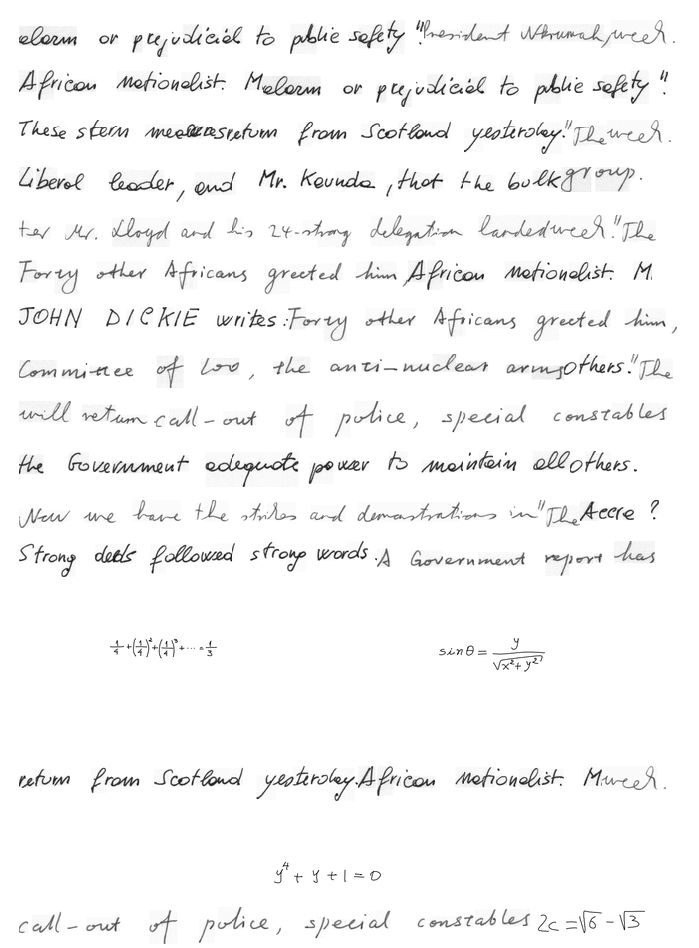 alarm or prejudicial to public safety "President Nkrumah, week.
African Nationalist. Malarm or prejudicial to public safety".
These stern measures return from Scotland yesterday." The week.
Liberal leader, and Mr. Kaunda, that the bulk group.
ter Mr. Lloyd and his 24-strong delegation landed week." The
Forty other Africans greeted him African Nationalist. M.
JOHN DICKIE writes: Forty other Africans greeted him,
Committee of 100, the anti-nuclear arms others." The
will return call-out of police, special constables
the Government adequate power to maintain all others.
Now we have the strikes and demonstrations in "The Accra ?
Strong deeds followed strong words. A Government report has
1/4 + (1/4)^2 + (1/4)^3 + ... = 1/3 sinθ = y/√(x^2 + y^2)
return from Scotland yesterday. African Nationalist. M week.
y^4 + y + 1 = 0
call-out of police, special constables 2c = √6 - √3